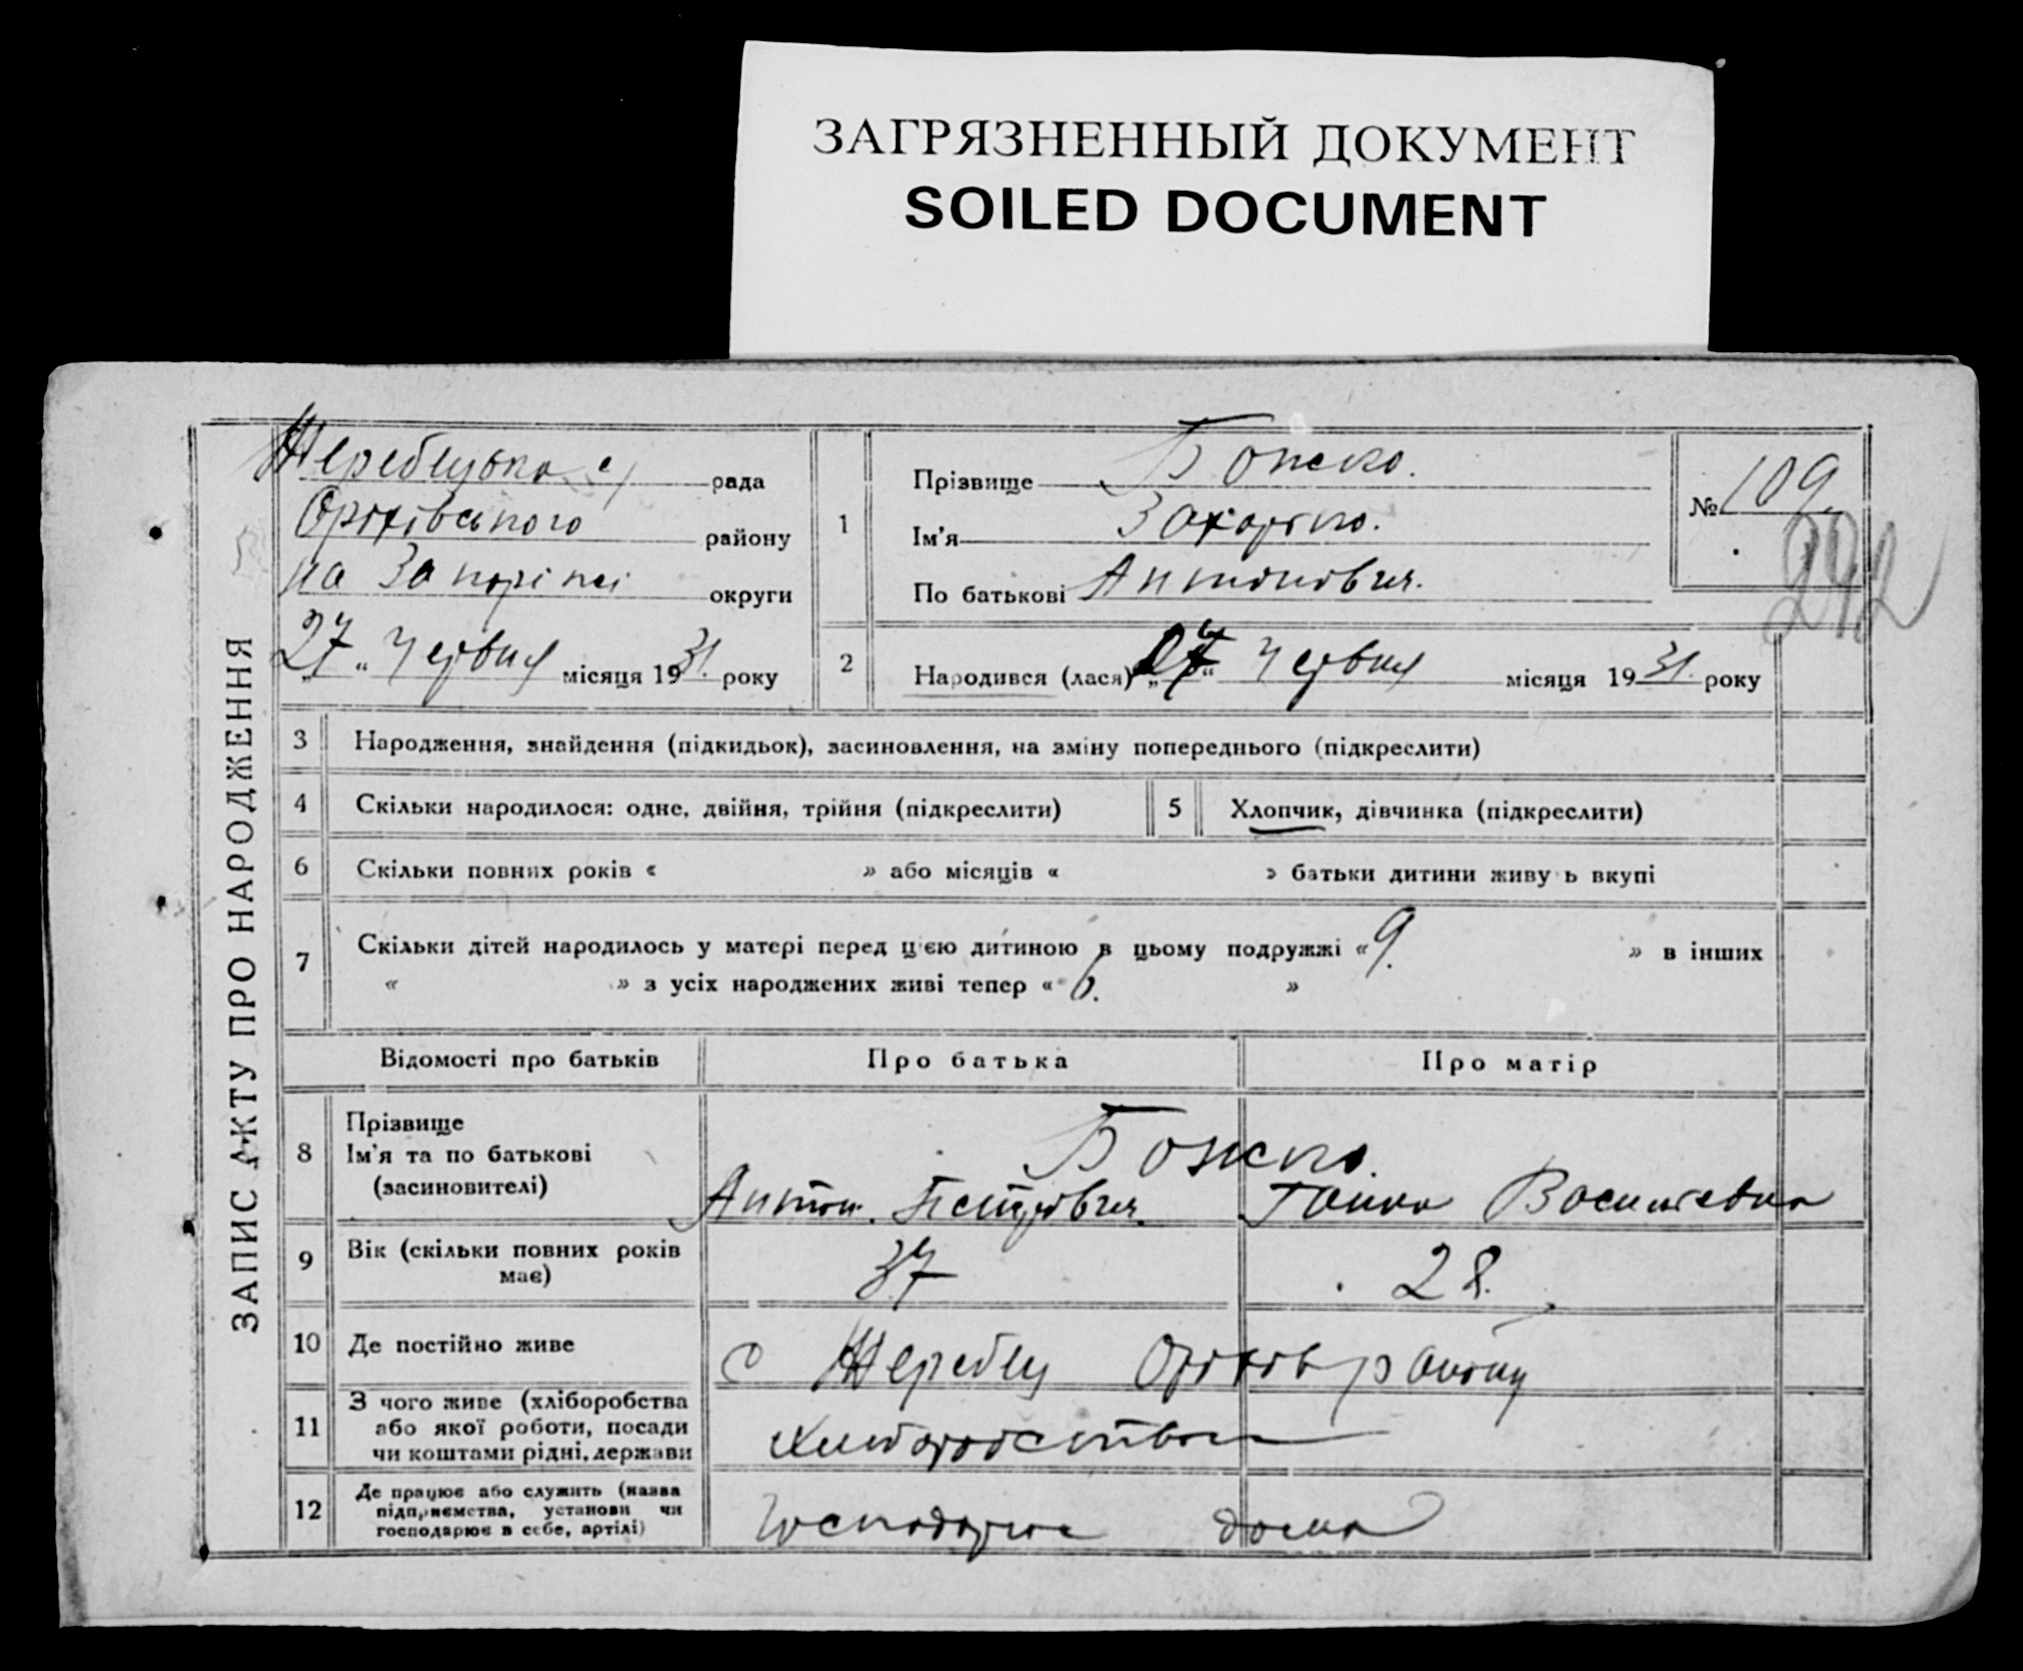 ЗАГРЯЗНЕННЫЙ ДОКУМЕНТ
SOILED DOCUMENT
ЗАПИС АКТУ ПРО НАРОДЖЕННЯ
Жеребецька с/ рада
Оріхівського району
на Запоріжжі округи
27 " Червня місяця 1931. року
1
Прізвище Божко.
Ім'я
По батькові Антонович.
№ 109
292
2
Народився (лася) " " Червня місяця 1931. року
3 Народження, знайдення (підкидьок), засиновлення, на зміну попереднього (підкреслити)
4 Скільки народилося: одне, двійня, трійня (підкреслити) 5 Хлопчик, дівчинка (підкреслити)
6 Скільки повних років « » або місяців « » батьки дитини живу ь вкупі
7 Скільки дітей народилось у матері перед цією дитиною в цьому подружжі « 9. » в інших
« » з усіх народжених живі тепер « 6. »
Відомості про батьків Про батька Про матір
8 Прізвище
Ім'я та по батькові
(засиновителі)
Божко.
Антон Петрович. Ганна Василевна
9 Вік (скільки повних років має) 37 28.
10 Де постійно живе с Жеребець Оріхів району
11 З чого живе (хліборобства
або якої роботи, посади
чи коштами рідні, держави
Хліборобством
12 Де працює або служить (назва
підприємства, установи чи
господарює в себе, артілі)
Господарює дома